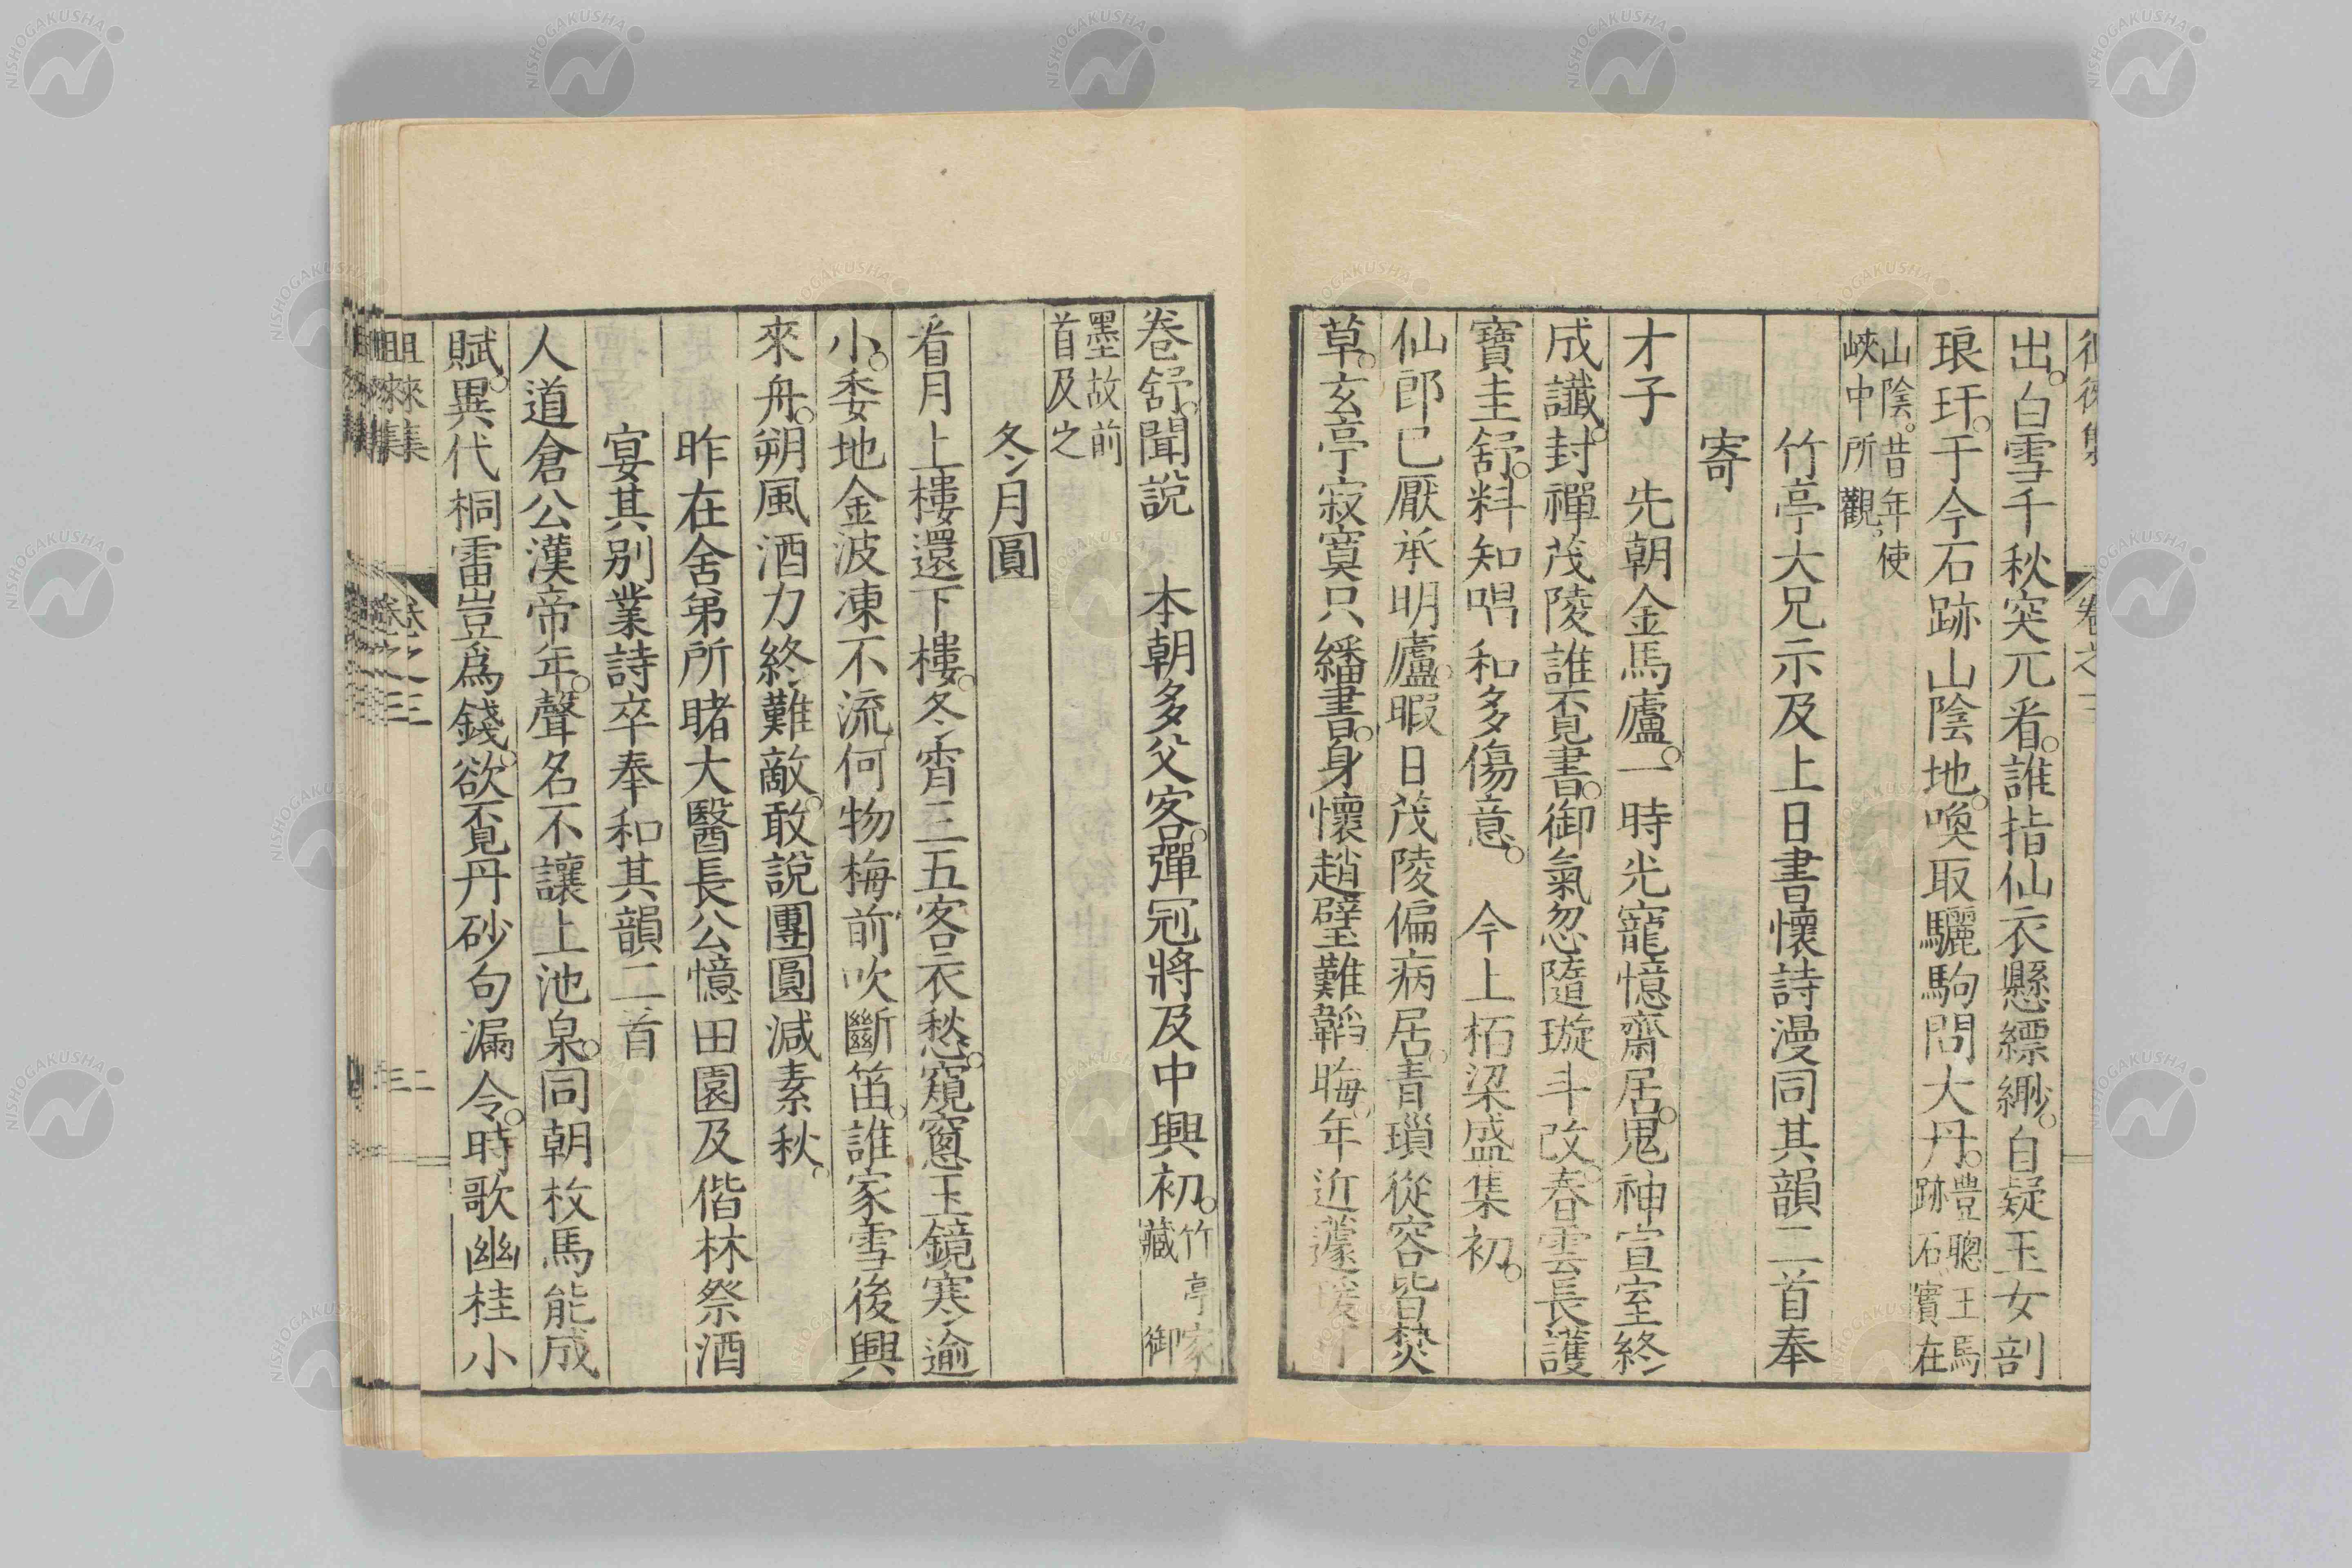 出。白雪千秋突兀看。誰指仙衣懸縹緲。自疑玉女剖
琅玕。于今石跡山陰地。喚取驪駒問大丹。豊聰王馬跡石寶在
山陰。昔年使峽中所觀。
竹亭大兄示及上日書懷詩漫同其韻二首奉
寄
才子 先朝金馬廬。一時光寵憶齋居。鬼神宣室終
成讖。封禪茂陵誰覓書。御氣忽隨璇斗改。春雲長護
寶圭舒。料知唱和多傷意。 今上柏梁盛集初。
仙郎已厭承明廬。暇日茂陵偏病居。青瑣從容皆焚
草。玄亭寂寞只繙書。身懷趙璧難韜晦。年近蘧
卷舒。聞說 本朝多父客。彈冠將及中興初。竹亭家藏 御
墨故前首及之
冬月圓
看月上樓還下樓。冬宵三五客衣愁。窺窻玉鏡寒逾
小。委地金波凍不流。何物梅前吹斷笛。誰家雪後興
來舟。朔風酒力終難敵。敢說團圓減素秋。
昨在舍弟所睹大醫長公憶田園及偕林祭酒
宴其別業詩卒奉和其韻二首
人道倉公漢帝年。聲名不讓上池泉。同朝枚馬能成
賦。異代桐雷豈爲錢。欲覓丹砂句漏令。時歌幽桂小
徂徠集
卷之三
二